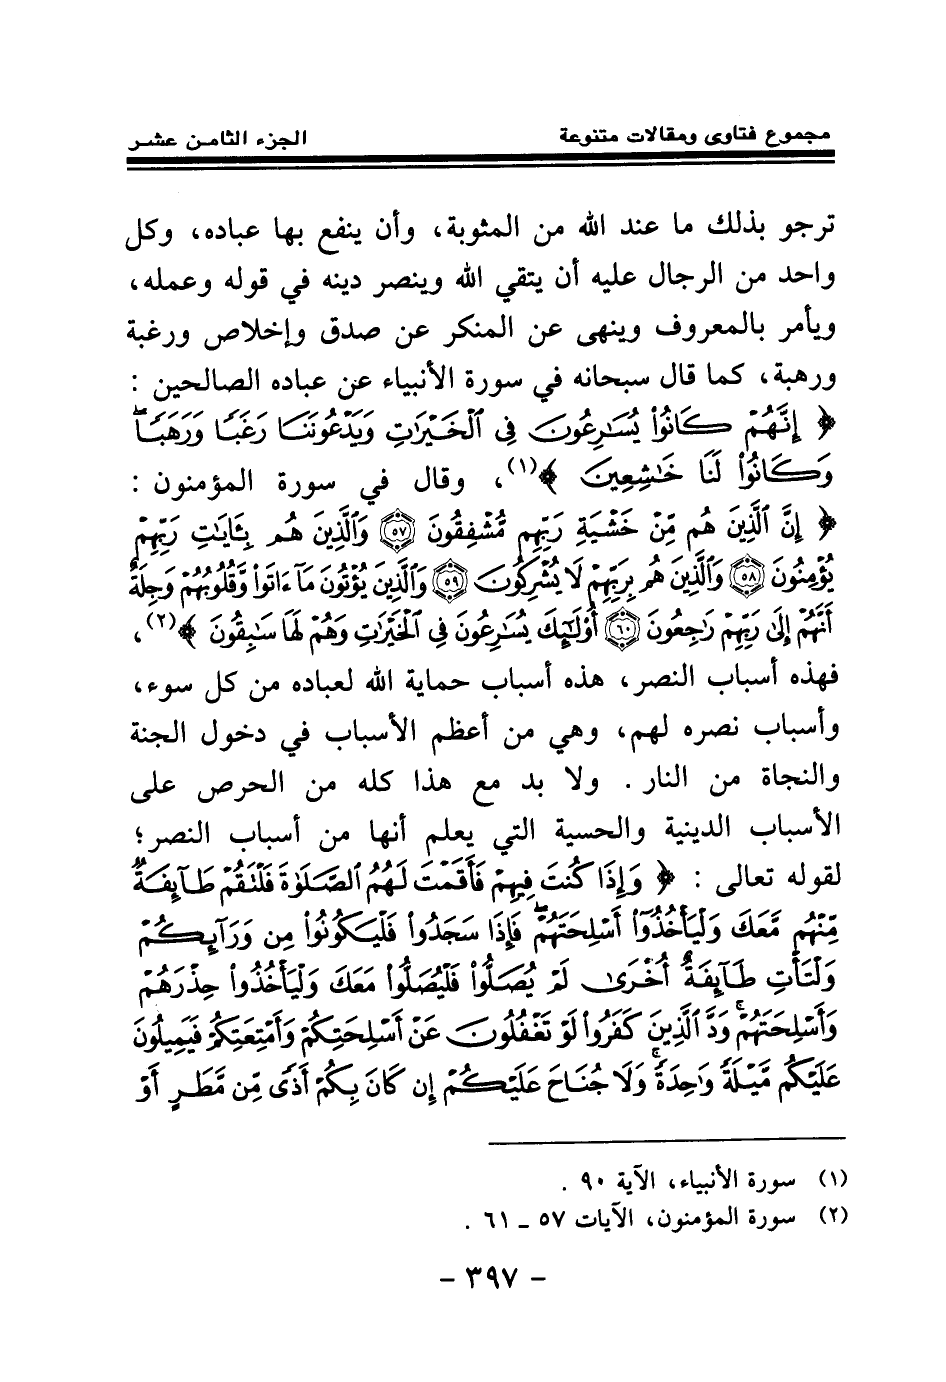 مجموع فتاوى ومقالات متنوعة الجزء الثامن عشر
ترجو بذلك ما عند الله من المثوبة، وأن ينفع بها عباده، وكل
واحد من الرجال عليه أن يتقي الله وينصر دينه في قوله وعمله،
ويأمر بالمعروف وينهى عن المنكر عن صدق وإخلاص ورغبة
ورهبة، كما قال سبحانه في سورة الأنبياء عن عباده الصالحين :
﴿ إِنَّهُمْ كَانُوا۟ يُسَٰرِعُونَ فِى ٱلْخَيْرَٰتِ وَيَدْعُونَنَا رَغَبًا وَرَهَبًا ۖ
وَكَانُوا۟ لَنَا خَٰشِعِينَ ﴾(١)، وقال في سورة المؤمنون :
﴿ إِنَّ ٱلَّذِينَ هُم مِّنْ خَشْيَةِ رَبِّهِم مُّشْفِقُونَ ٥٧ وَٱلَّذِينَ هُم بِـَٔايَٰتِ رَبِّهِمْ
يُؤْمِنُونَ ٥٨ وَٱلَّذِينَ هُم بِرَبِّهِمْ لَا يُشْرِكُونَ ٥٩ وَٱلَّذِينَ يُؤْتُونَ مَآ ءَاتَوا۟ وَّقُلُوبُهُمْ وَجِلَةٌ
أَنَّهُمْ إِلَىٰ رَبِّهِمْ رَٰجِعُونَ ٦٠ أُو۟لَٰٓئِكَ يُسَٰرِعُونَ فِى ٱلْخَيْرَٰتِ وَهُمْ لَهَا سَٰبِقُونَ ﴾(٢)،
فهذه أسباب النصر، هذه أسباب حماية الله لعباده من كل سوء،
وأسباب نصره لهم، وهي من أعظم الأسباب في دخول الجنة
والنجاة من النار . ولا بد مع هذا كله من الحرص على
الأسباب الدينية والحسية التي يعلم أنها من أسباب النصر؛
لقوله تعالى : ﴿ وَإِذَا كُنتَ فِيهِمْ فَأَقَمْتَ لَهُمُ ٱلصَّلَوٰةَ فَلْتَقُمْ طَآئِفَةٌ
مِّنْهُم مَّعَكَ وَلْيَأْخُذُوٓا۟ أَسْلِحَتَهُمْ ۖ فَإِذَا سَجَدُوا۟ فَلْيَكُونُوا۟ مِن وَرَآئِكُمْ
وَلْتَأْتِ طَآئِفَةٌ أُخْرَىٰ لَمْ يُصَلُّوا۟ فَلْيُصَلُّوا۟ مَعَكَ وَلْيَأْخُذُوا۟ حِذْرَهُمْ
وَأَسْلِحَتَهُمْ ۗ وَدَّ ٱلَّذِينَ كَفَرُوا۟ لَوْ تَغْفُلُونَ عَنْ أَسْلِحَتِكُمْ وَأَمْتِعَتِكُمْ فَيَمِيلُونَ
عَلَيْكُم مَّيْلَةً وَٰحِدَةً ۚ وَلَا جُنَاحَ عَلَيْكُمْ إِن كَانَ بِكُمْ أَذًى مِّن مَّطَرٍ أَوْ
(١) سورة الأنبياء، الآية ٩٠ .
(٢) سورة المؤمنون، الآيات ٥٧ ـ ٦١ .
- ٣٩٧ -